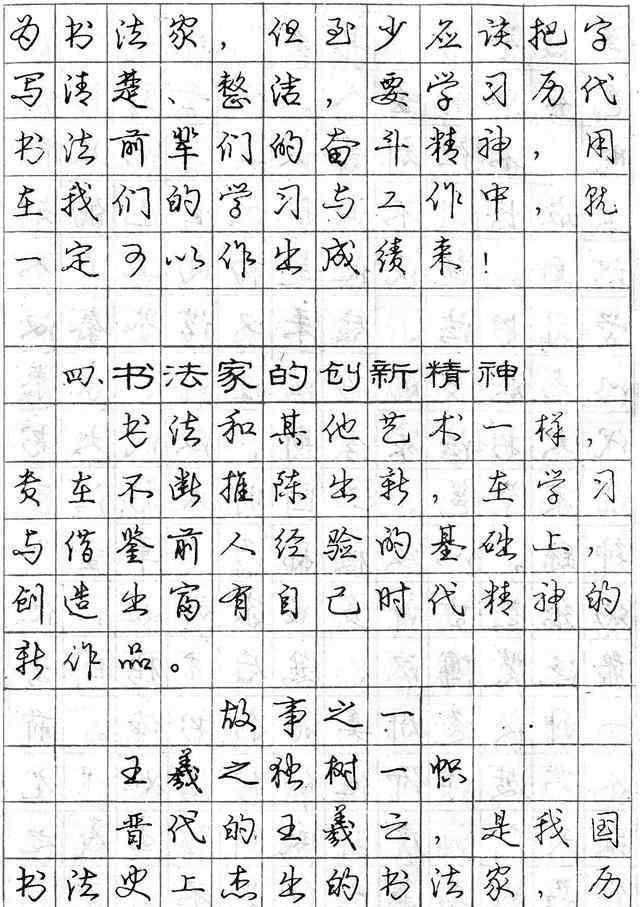 为书法家，但至少应该把字
写清楚、整洁，要学习历代
书法前辈们的奋斗精神，用
在我们的学习与工作中，就
一定可以作出成绩来！
四、书法家的创新精神
书法和其他艺术一样，
贵在不断推陈出新，在学习
与借鉴前人经验的基础上，
创造出富有自己时代精神的
新作品。
故事之一
王羲之独树一帜
晋代的王羲之，是我国
书法史上杰出的书法家，历